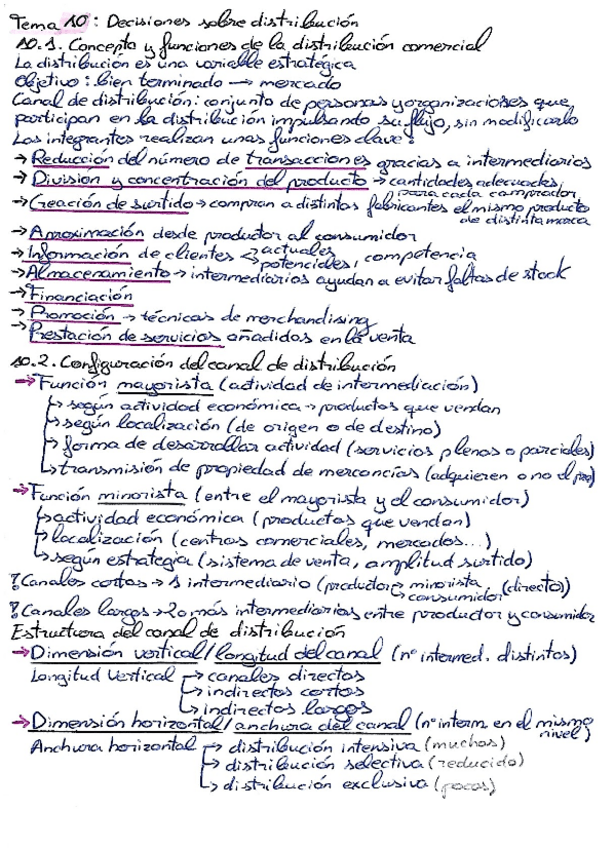 Tema 10: Decisiones sobre distribución
10.1. Concepto y funciones de la distribución comercial
La distribución es una variable estratégica
Objetivo: bien terminado → mercado
Canal de distribución: conjunto de personas y organizaciones que
participan en la distribución impulsando su flujo, sin modificarlo
Los integrantes realizan unas funciones clave:
→ Reducción del número de transacciones gracias a intermediarios
→ División y concentración del producto → cantidades adecuadas
para cada comprador
→ Creación de surtido → compran a distintos fabricantes el mismo producto
de distinta marca
→ Aproximación desde productor al consumidor
→ Información de clientes < actuales
potenciales, competencia
→ Almacenamiento → intermediarios ayudan a evitar faltas de stock
→ Financiación
→ Promoción → técnicas de merchandising
→ Prestación de servicios añadidos en la venta
10.2. Configuración del canal de distribución
→ Función mayorista (actividad de intermediación)
↳ según actividad económica → productos que vendan
↳ según localización (de origen o de destino)
↳ forma de desarrollar actividad (servicios plenos o parciales)
↳ transmisión de propiedad de mercancías (adquieren o no el pro)
→ Función minorista (entre el mayorista y el consumidor)
↳ actividad económica (productos que vendan)
↳ localización (centros comerciales, mercados...)
↳ según estrategia (sistema de venta, amplitud surtido)
Canales cortos → 1 intermediario (productor → minorista, (directo)
↳ consumidor
Canales largos → 2 o más intermediarios entre productor y consumidor
Estructura del canal de distribución
→ Dimensión vertical/longitud del canal (nº intermed. distintos)
Longitud Vertical → canales directos
↳ indirectos cortos
↳ indirectos largos
→ Dimensión horizontal/anchura del canal (nº interm. en el mismo
nivel)
Anchura horizontal → distribución intensiva (muchos)
↳ distribución selectiva (reducido)
↳ distribución exclusiva (pocos)